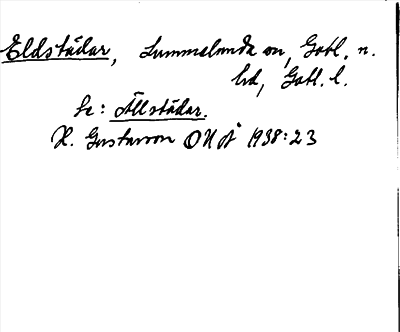 Eldstädar, Lummelunda sn, Gotl. n.
hd, Gotl. l.
Se: Ällstädar.
H. Gustavson ONÅ 1938:23